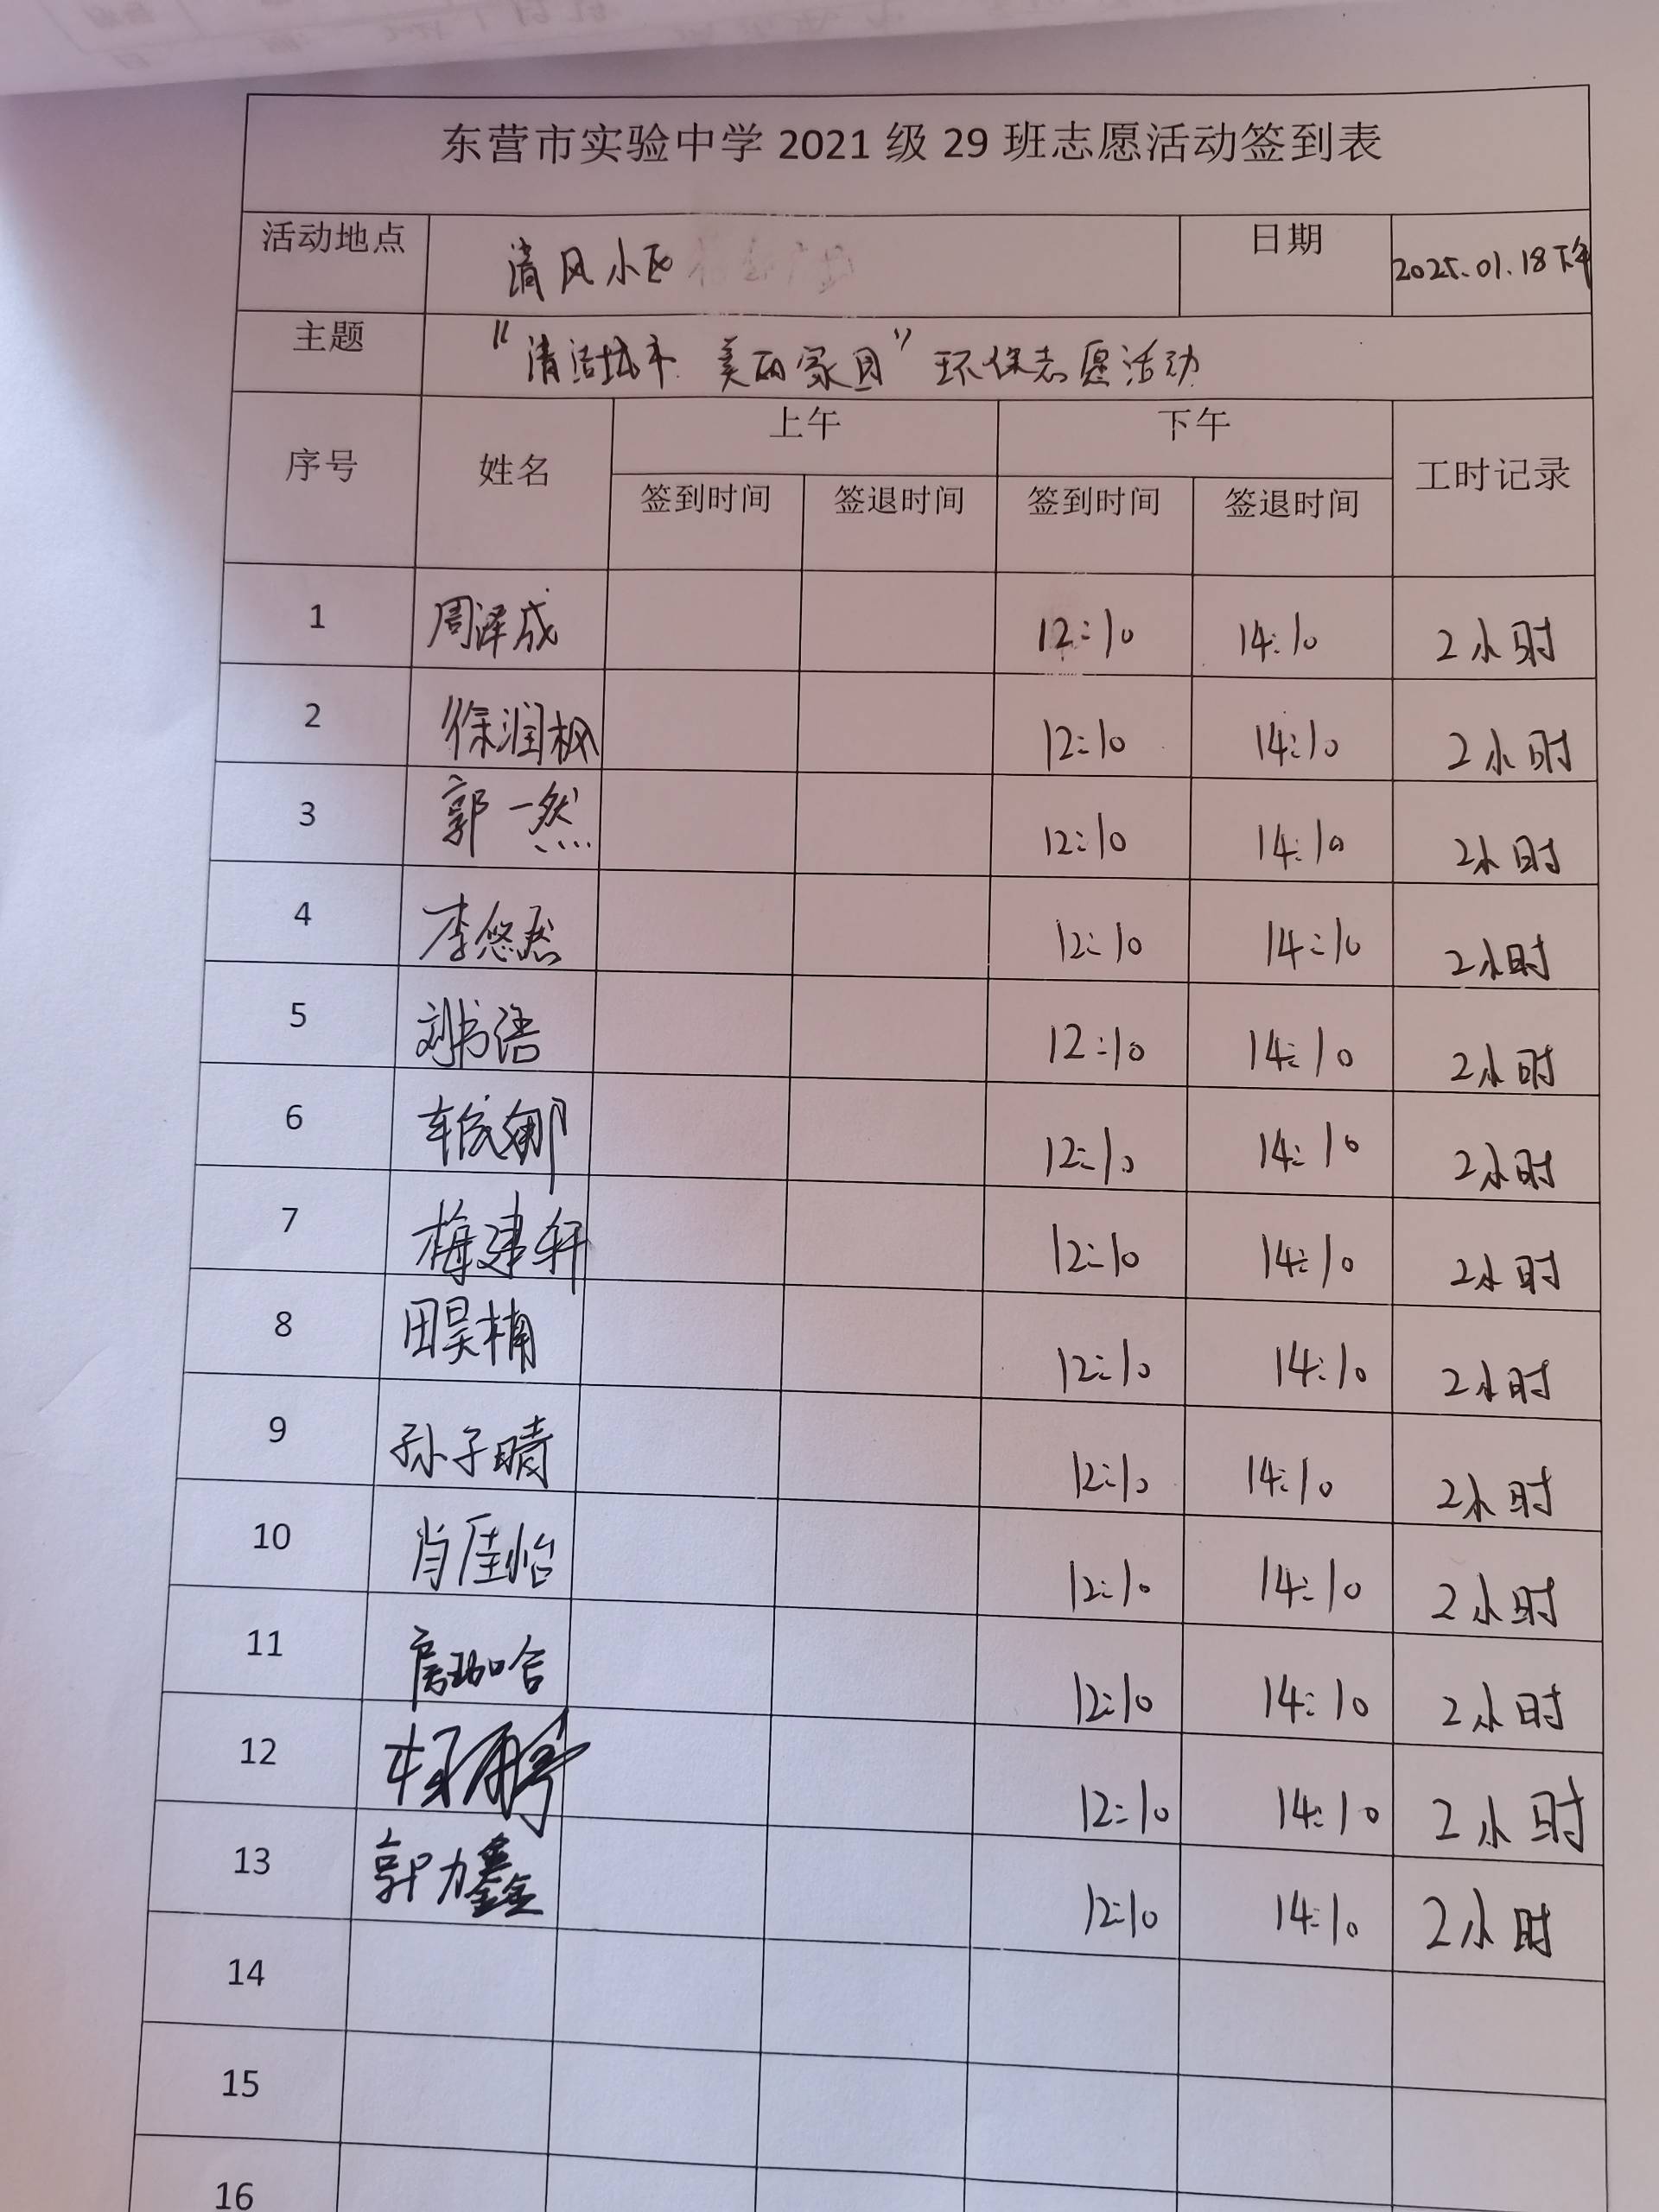 东营市实验中学2021级29班志愿活动签到表
活动地点 清风小区 日期 2025.01.18下午
主题 “清洁城市 美丽家园”环保志愿活动
序号 姓名 上午 下午 工时记录
签到时间 签退时间 签到时间 签退时间
1 周泽成 12:10 14:10 2小时
2 徐润枫 12:10 14:10 2小时
3 郭一然 12:10 14:10 2小时
4 李悠然 12:10 14:10 2小时
5 刘书语 12:10 14:10 2小时
6 12:10 14:10 2小时
7 梅建轩 12:10 14:10 2小时
8 田昊楠 12:10 14:10 2小时
9 孙子晴 12:10 14:10 2小时
10 肖佳怡 12:10 14:10 2小时
11 12:10 14:10 2小时
12 12:10 14:10 2小时
13 郭力鑫 12:10 14:10 2小时
14
15
16